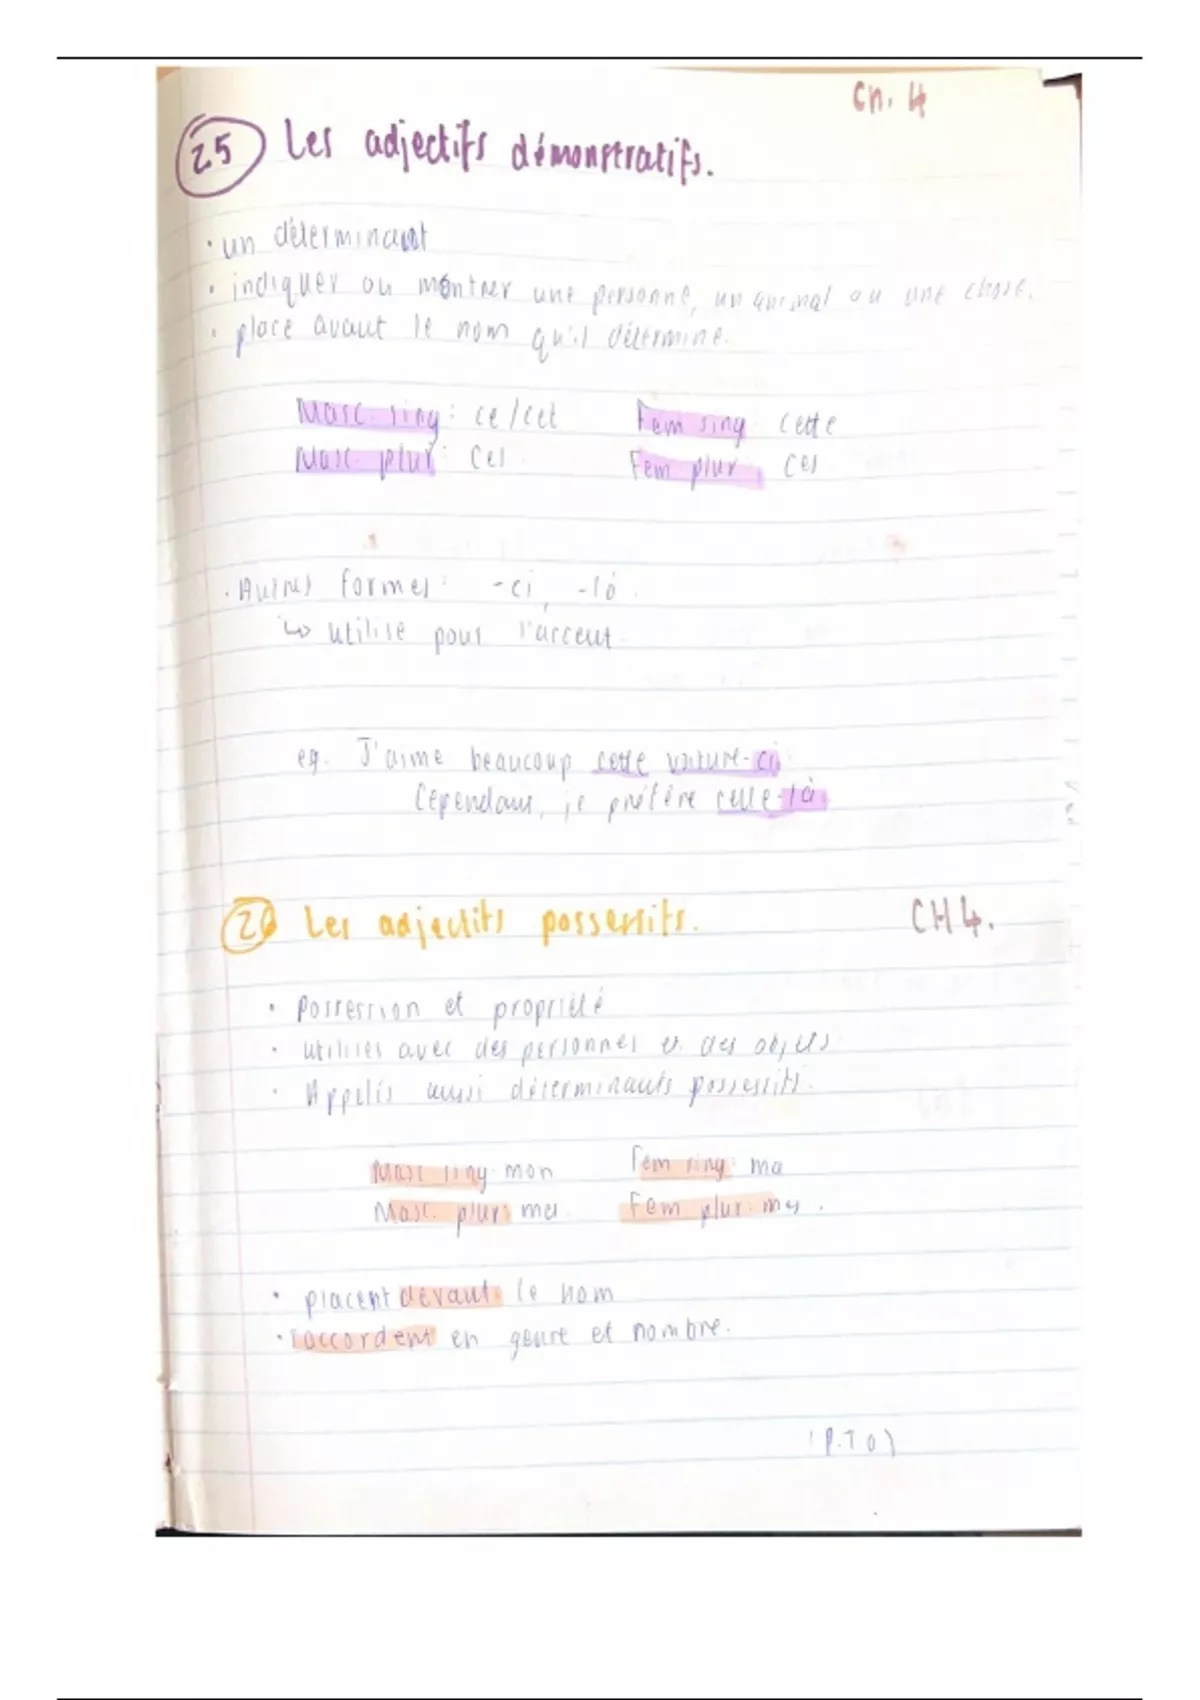 Ch. 4
25 Les adjectifs démonstratifs.
• un déterminant
• indiquer ou montrer une personne, un animal ou une chose.
• place avant le nom qu'il détermine.
Masc. sing: ce/cet Fem sing: cette
Masc. plur: ces Fem plur: ces
• Autres formes: -ci, -là.
↳ utilise pour l'accent.
eg. J'aime beaucoup cette voiture-ci.
Cependant, je préfère celle-là.
26 Les adjectifs possessifs. CH4.
• Possession et propriété
• utilisés avec des personnes et des objets
• Appelés aussi déterminants possessifs.
Masc sing: mon Fem sing: ma
Masc. plur: mes Fem plur: mes.
• placent devant le nom
• s'accordent en genre et nombre.
(P.T.O)